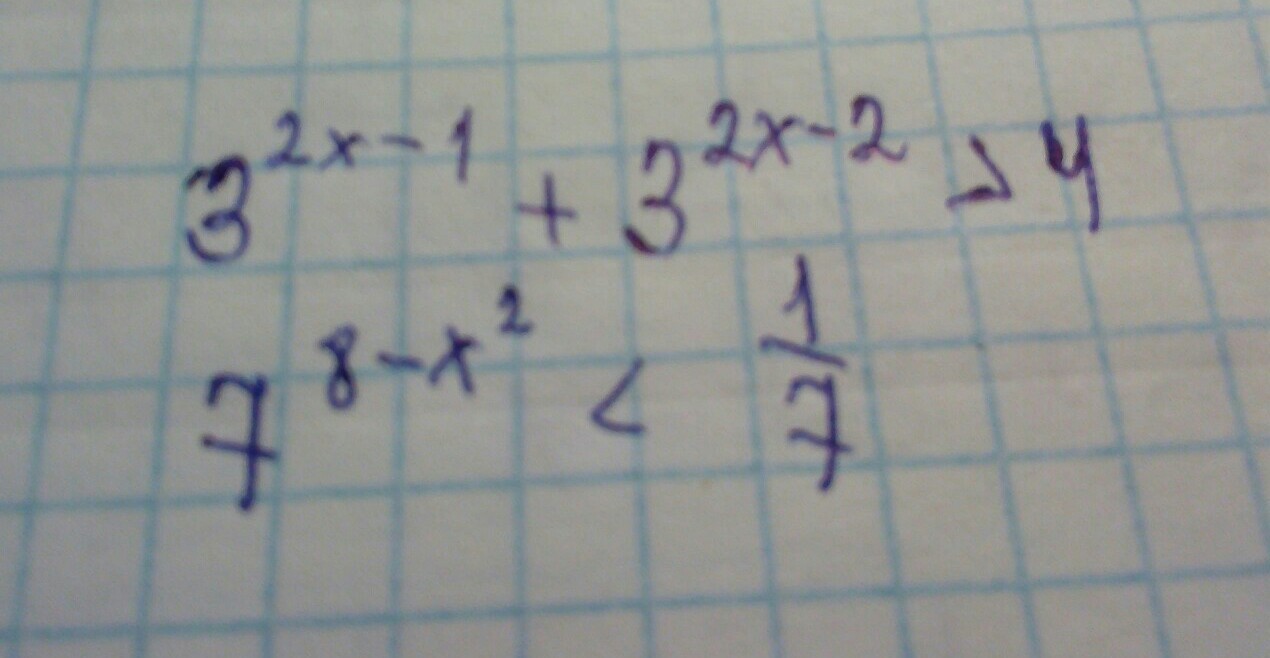 3^{2x-1} + 3^{2x-2} > 4
7^{8-x^2} < \frac{1}{7}